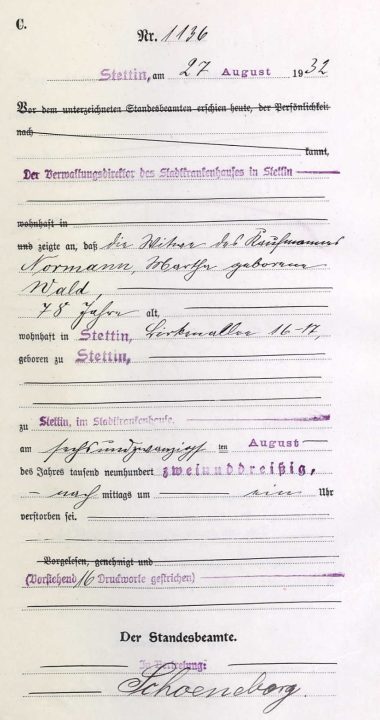 C.
Nr. 1136
Stettin, am 27 August 1932
Vor dem unterzeichneten Standesbeamten erschien heute, der Persönlichkeit
nach
kannt,
Der Verwaltungsdirektor des Stadtkrankenhauses in Stettin
wohnhaft in
und zeigte an, daß die Witwe des Kaufmannes
Normann, Martha geborene
Wald
78 Jahre alt,
wohnhaft in Stettin, Birkenallee 16-17,
geboren zu Stettin,
zu Stettin, im Stadtkrankenhause.
am sechsundzwanzigsten August
des Jahres tausend neunhundert zweiunddreißig,
nach mittags um ein Uhr
verstorben sei.
Vorgelesen, genehmigt und
(Vorstehend 16 Druckworte gestrichen)
Der Standesbeamte.
In Vertretung:
Schoeneberg.